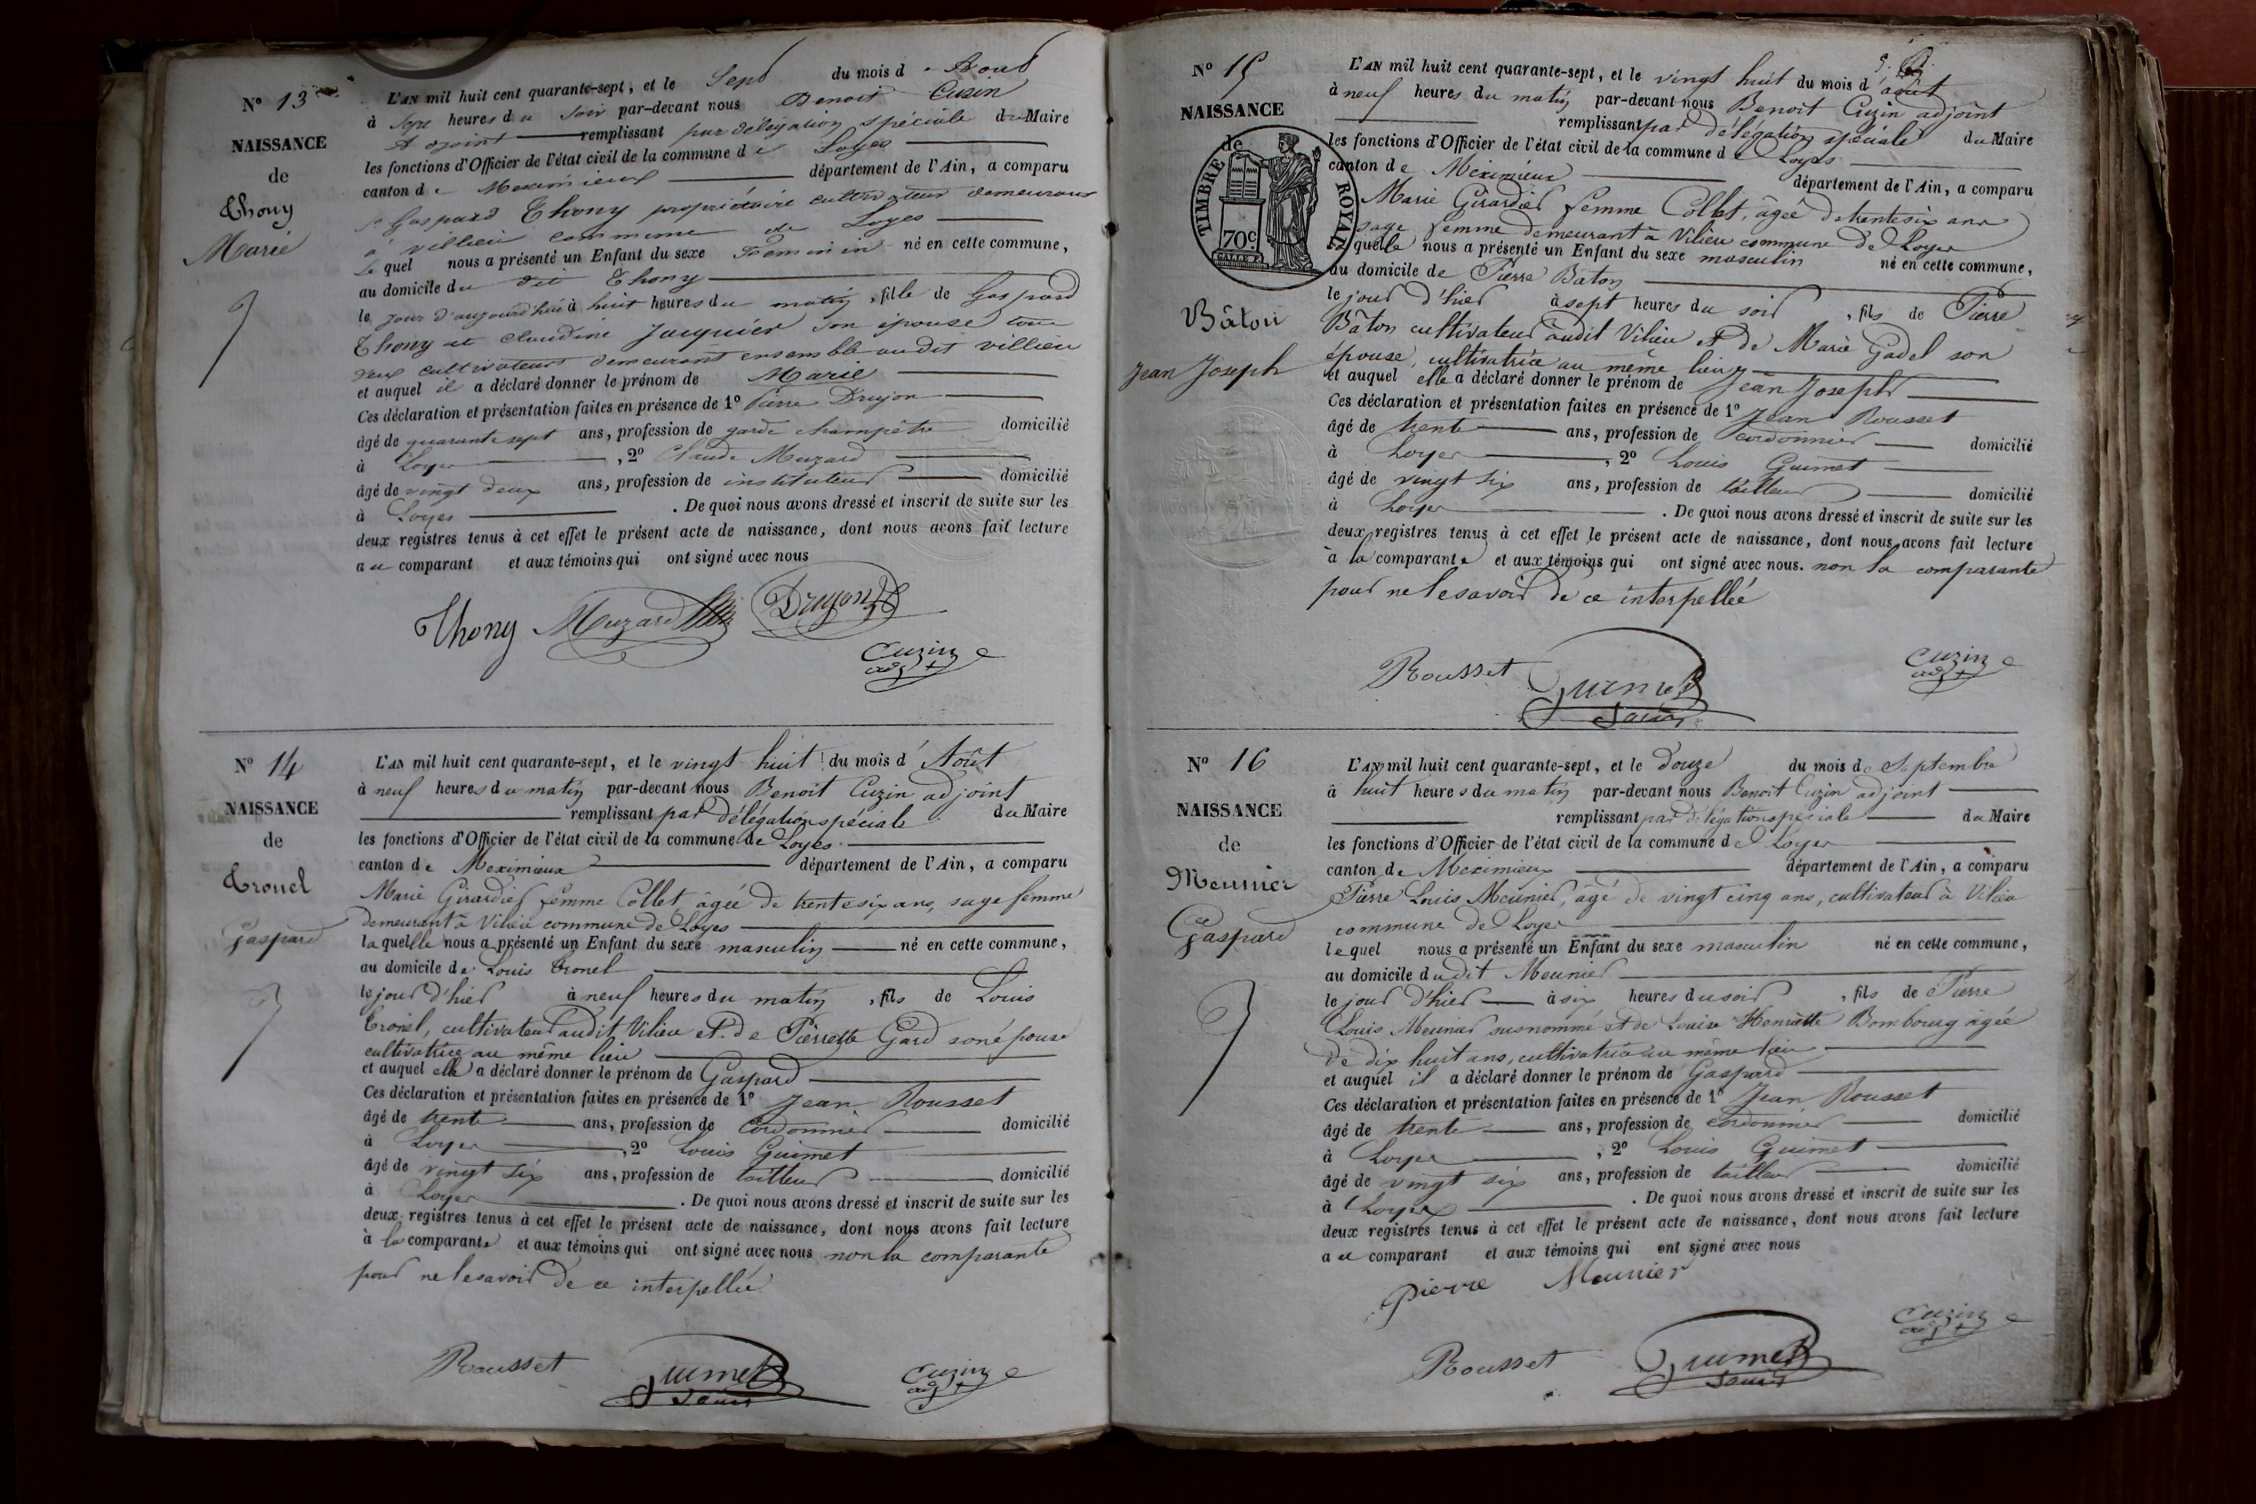 N° 13
NAISSANCE
de
Thony
Marie
L'AN mil huit cent quarante-sept, et le Sept du mois d'Aout
à Sept heures du Soir par-devant nous Benoit Cuzin
Adjoint remplissant par délégation spéciale du Maire
les fonctions d'Officier de l'état civil de la commune de Loyes
canton de Meximieux département de l'Ain, a comparu
Gaspard Thony propriétaire cultivateur demeurant
à villieu commune de Loyes
Lequel nous a présenté un Enfant du sexe Feminin né en cette commune,
au domicile du dit Thony
le jour d'aujourd'hui à huit heures du matin, fille de Gaspard
Thony et claudine Jacquier son épouse tous
deux cultivateurs demeurant ensemble audit villieu
et auquel il a déclaré donner le prénom de Marie
Ces déclaration et présentation faites en présence de 1° Pierre Drujon
âgé de quarante sept ans, profession de garde champêtre domicilié
à Loyes, 2° Claude Muzard
âgé de vingt deux ans, profession de instituteur domicilié
à Loyes. De quoi nous avons dressé et inscrit de suite sur les
deux registres tenus à cet effet le présent acte de naissance, dont nous avons fait lecture
au comparant et aux témoins qui ont signé avec nous
Thony Muzard Drujon
Cuzin
adjt
N° 14
NAISSANCE
de
Tronel
Gaspard
L'AN mil huit cent quarante-sept, et le vingt huit du mois d'Août
à neuf heures du matin par-devant nous Benoit Cuzin adjoint
remplissant par délégation spéciale du Maire
les fonctions d'Officier de l'état civil de la commune de Loyes
canton de Meximieux département de l'Ain, a comparu
Marie Girardier femme Collet, âgée de trente six ans, sage femme
demeurant à Vilieu commune de Loyes
laquelle nous a présenté un Enfant du sexe masculin né en cette commune,
au domicile de Louis Tronel
le jour d'hier à neuf heures du matin, fils de Louis
Tronel, cultivateur audit Vilieu et de Pierrette Gard son épouse
cultivatrice au même lieu
et auquel elle a déclaré donner le prénom de Gaspard
Ces déclaration et présentation faites en présence de 1° Jean Rousset
âgé de trente ans, profession de Cordonnier domicilié
à Loyes, 2° Louis Guimet
âgé de vingt six ans, profession de tailleur domicilié
à Loyes. De quoi nous avons dressé et inscrit de suite sur les
deux registres tenus à cet effet le présent acte de naissance, dont nous avons fait lecture
à la comparante et aux témoins qui ont signé avec nous non la comparante
pour ne le savoir de ce interpellée
Rousset Guimet Louis
Cuzin
adjt
N° 15
NAISSANCE
de
TIMBRE ROYAL
70c.
Bâton
Jean Joseph
L'AN mil huit cent quarante-sept, et le vingt huit du mois d'août
à neuf heures du matin par-devant nous Benoit Cuzin adjoint
remplissant par délégation spéciale du Maire
les fonctions d'Officier de l'état civil de la commune de Loyes
canton de Meximieux département de l'Ain, a comparu
Marie Girardier femme Collet, âgée de trente six ans
sage femme demeurant à Vilieu commune de Loyes
laquelle nous a présenté un Enfant du sexe masculin né en cette commune,
au domicile de Pierre Bâton
le jour d'hier à sept heures du soir, fils de Pierre
Bâton cultivateur audit Vilieu et de Marie Gadel son
épouse, cultivatrice au même lieu
et auquel elle a déclaré donner le prénom de Jean Joseph
Ces déclaration et présentation faites en présence de 1° Jean Rousset
âgé de trente ans, profession de Cordonnier domicilié
à Loyes, 2° Louis Guimet
âgé de vingt six ans, profession de tailleur domicilié
à Loyes. De quoi nous avons dressé et inscrit de suite sur les
deux registres tenus à cet effet le présent acte de naissance, dont nous avons fait lecture
à la comparante et aux témoins qui ont signé avec nous. non la comparante
pour ne le savoir de ce interpellée
Rousset Guimet Louis
Cuzin
adjt
N° 16
NAISSANCE
de
Meunier
Gaspard
L'AN mil huit cent quarante-sept, et le douze du mois de Septembre
à huit heures du matin par-devant nous Benoit Cuzin adjoint
remplissant par délégation spéciale du Maire
les fonctions d'Officier de l'état civil de la commune de Loyes
canton de Meximieux département de l'Ain, a comparu
Pierre Louis Meunier, âgé de vingt cinq ans, cultivateur à Vilieu
commune de Loyes
lequel nous a présenté un Enfant du sexe masculin né en cette commune,
au domicile dudit Meunier
le jour d'hier à six heures du soir, fils de Pierre
Louis Meunier susnommé et de Louise Henriette Bombourg âgée
de dix huit ans, cultivatrice au même lieu
et auquel il a déclaré donner le prénom de Gaspard
Ces déclaration et présentation faites en présence de 1° Jean Rousset
âgé de trente ans, profession de cordonnier domicilié
à Loyes, 2° Louis Guimet
âgé de vingt six ans, profession de tailleur domicilié
à Loyes. De quoi nous avons dressé et inscrit de suite sur les
deux registres tenus à cet effet le présent acte de naissance, dont nous avons fait lecture
au comparant et aux témoins qui ont signé avec nous
Pierre Meunier
Cuzin
adjt
Rousset Guimet Louis